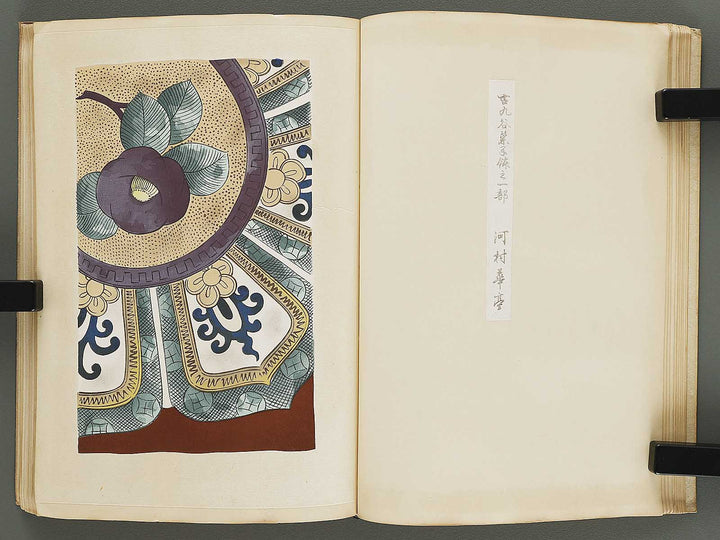 古九谷菓子鉢之一部　河村華亭